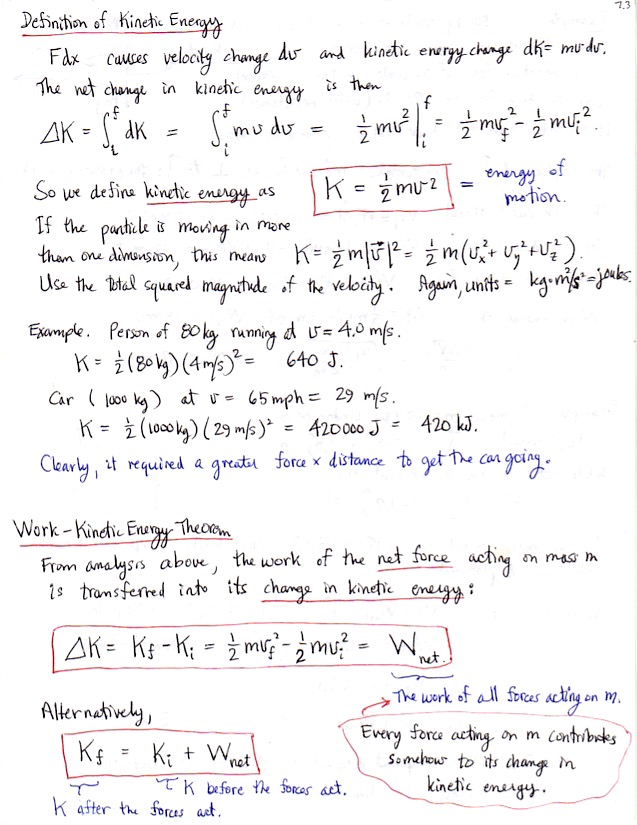 7.3
Definition of Kinetic Energy
Fdx causes velocity change dv and kinetic energy change dK = mv dv.
The net change in kinetic energy is then
ΔK = ∫_i^f dK = ∫_i^f mv dv = ½ mv² |_i^f = ½ mv_f² - ½ mv_i².
So we define kinetic energy as K = ½ mv² = energy of motion.
If the particle is moving in more
than one dimension, this means K = ½ m|v⃗|² = ½ m(v_x² + v_y² + v_z²).
Use the total squared magnitude of the velocity. Again, units = kg·m²/s² = joules.
Example. Person of 80 kg running at v = 4.0 m/s.
K = ½ (80 kg)(4 m/s)² = 640 J.
Car (1000 kg) at v = 65 mph = 29 m/s.
K = ½ (1000 kg)(29 m/s)² = 420000 J = 420 kJ.
Clearly, it required a greater force × distance to get the car going.
Work-Kinetic Energy Theorem
From analysis above, the work of the net force acting on mass m
is transferred into its change in kinetic energy:
ΔK = K_f - K_i = ½ mv_f² - ½ mv_i² = W_net.
The work of all forces acting on m.
Alternatively,
K_f = K_i + W_net
K before the forces act.
K after the forces act.
Every force acting on m contributes
somehow to its change in
kinetic energy.